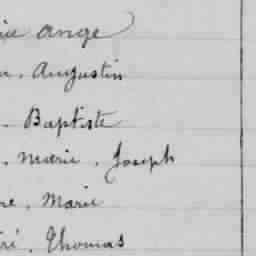 ange
. Augustin
. Baptiste
. marie . Joseph
re . Marie
ré . Thomas